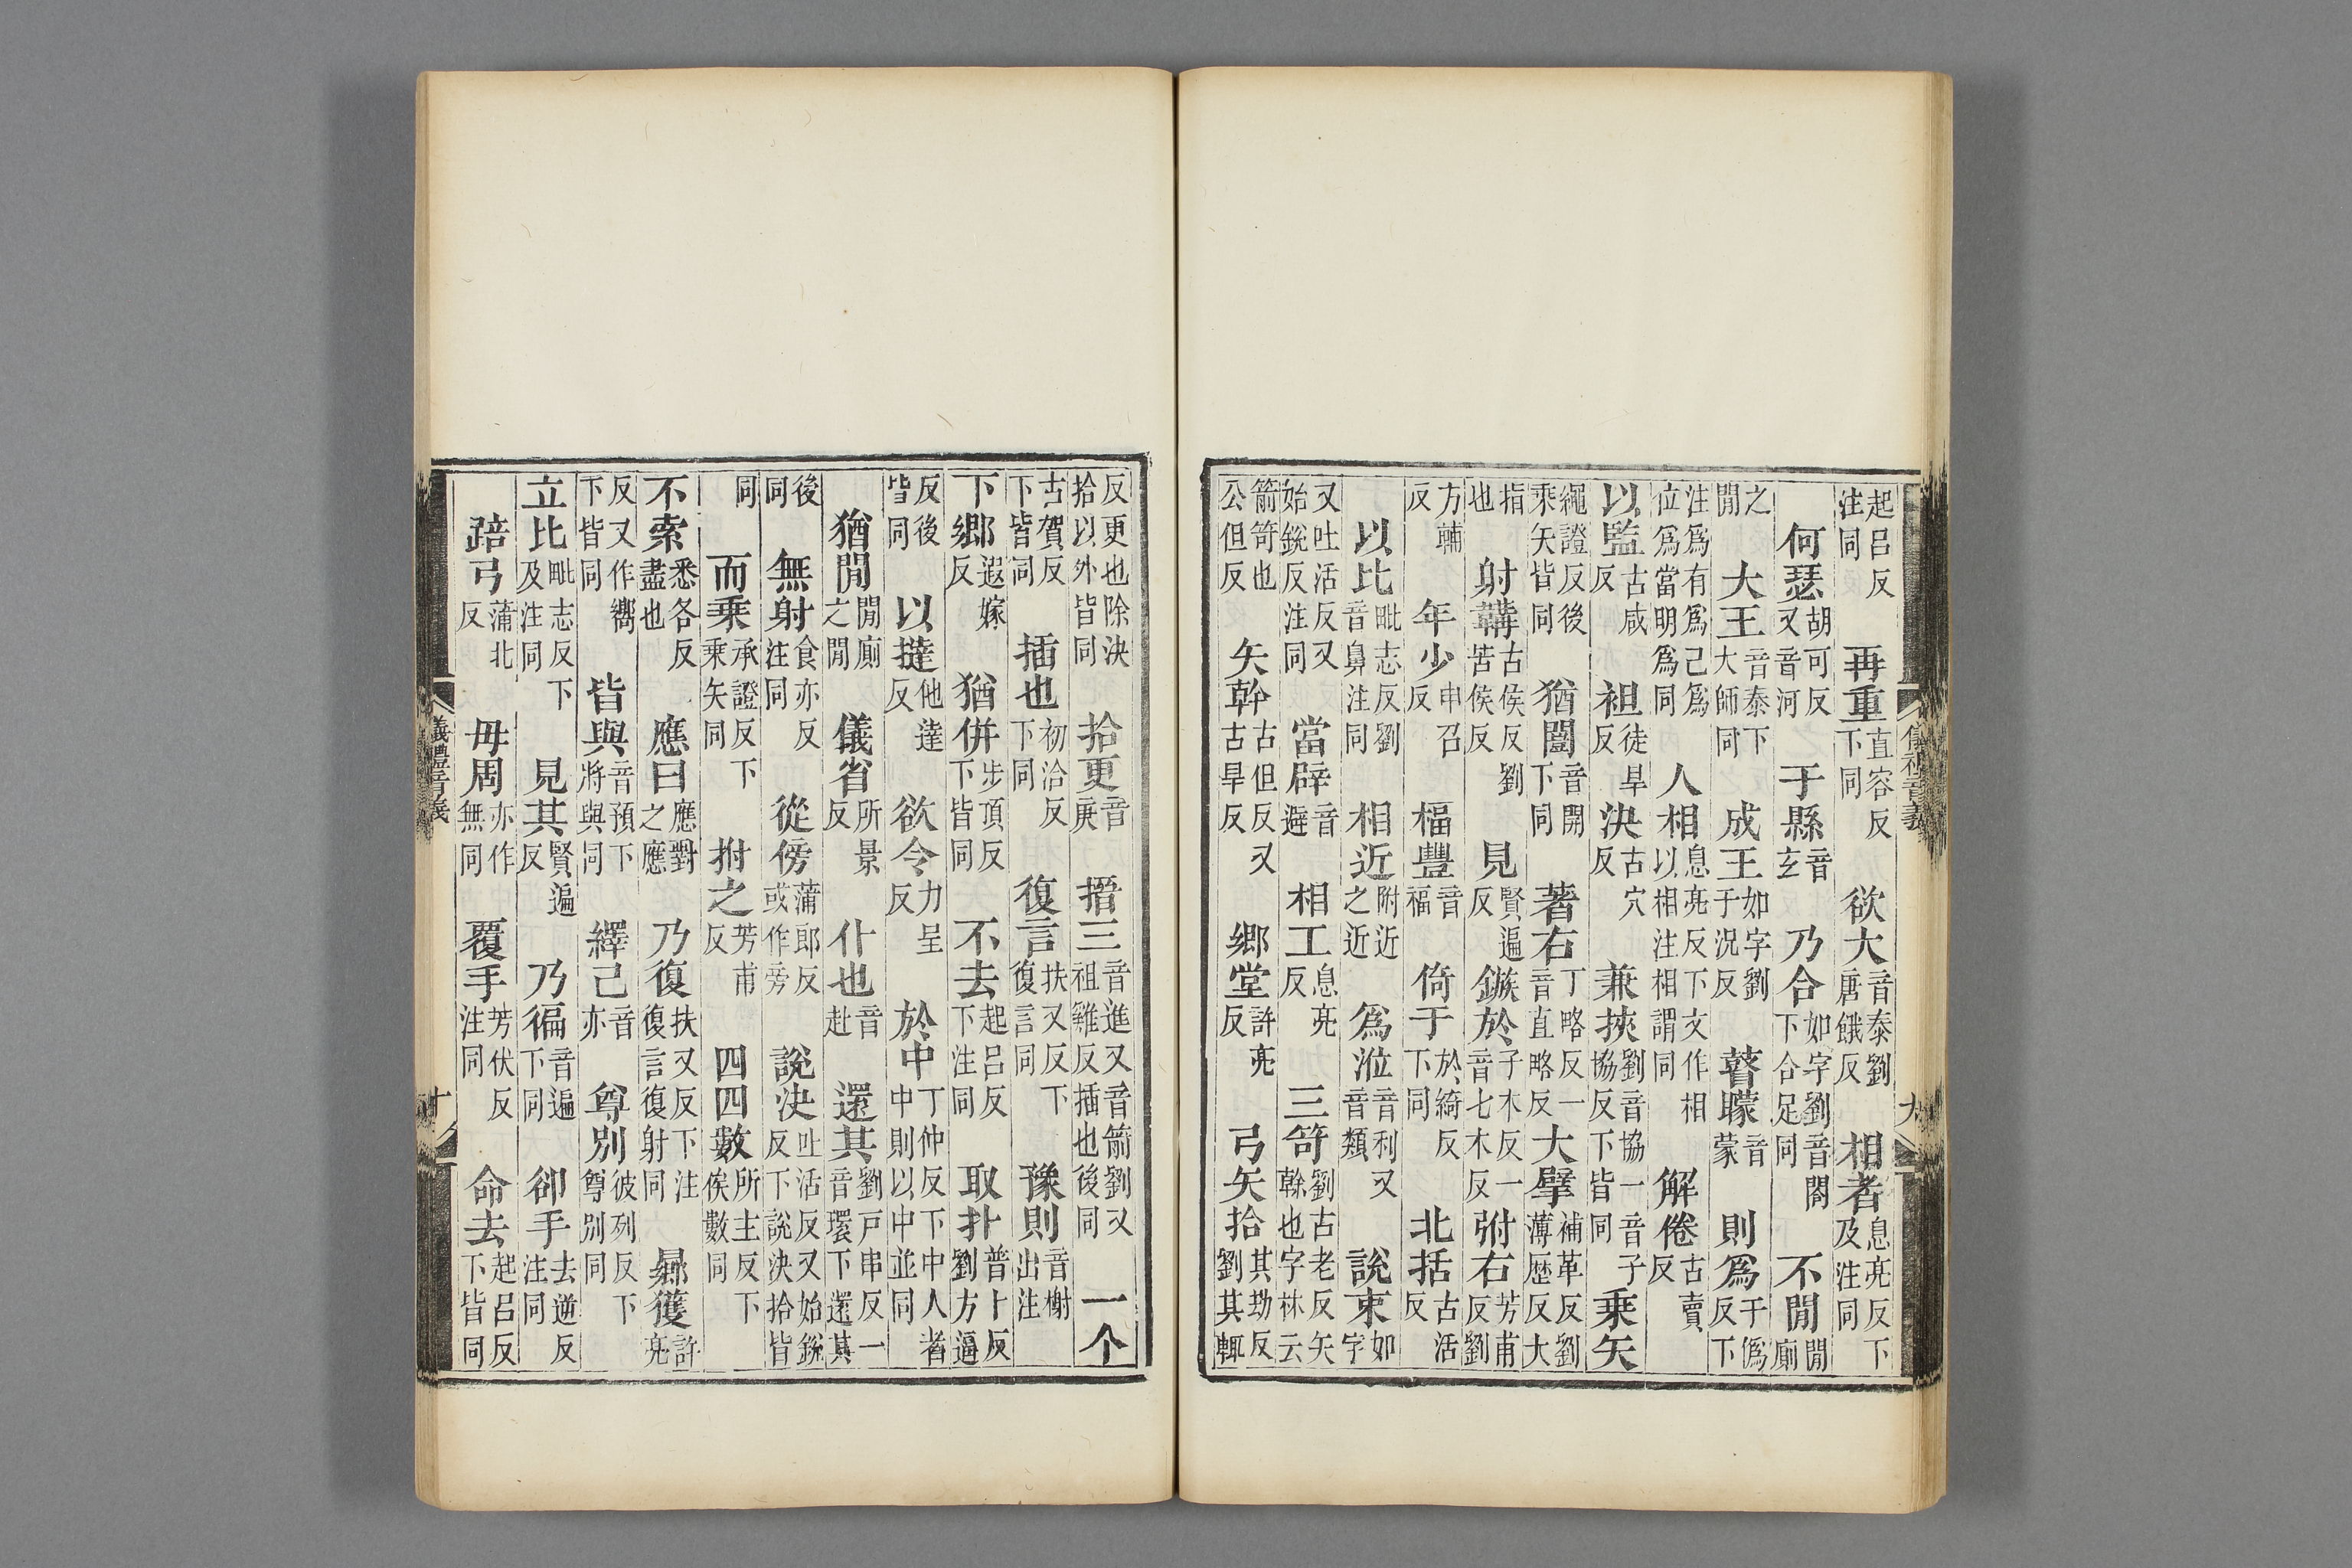 起呂反注同　再重直容反下同　欲大音泰劉唐餓反　相者息亮反下及注同
何瑟胡可反又音河　于縣音玄　乃合如字劉音閤下合足同　不閒閒厠
之閒　大王音泰下大師同　成王如字劉于況反　瞽矇音蒙　則爲于僞反下
注爲有爲己爲位爲當明爲同　人相息亮反下文作相以相相注相謂同　解倦古賣反
以監古咸反　袒徒旱反　決古穴反　兼挾劉音協一音子協反下皆同　乘矢
繩證反後乘矢皆同　猶闓音開下同　著右丁略反一音直略反　大擘補革反劉薄歷反大
指也　射韝古侯反劉苦侯反　見賢遍反　鏃於子木反一音七木反　弣右芳甫反劉
方輔反　年少申召反　楅豐音福　倚于於綺反下同　北括古活反
以比毗志反劉音鼻注同　相近附近之近　爲涖音利又音類　說束如字
又吐活反又始銳反注同　當辟音避　相工息亮反　三笴劉古老反矢幹也字林云
箭笴也公但反　矢幹古但反又古旱反　鄉堂許亮反　弓矢拾其劫反劉其輒
反更也除決拾以外皆同　拾更音庚　搢三音進又音箭劉又祖雞反插也後同　一个
古賀反下皆同　插也初洽反下同　復言扶又反下復言同　豫則音榭出注
下鄉遐嫁反　猶併步頂反下皆同　不去起呂反下注同　取扑普卜反劉方逼
反後皆同　以撻他達反　欲令力呈反　於中丁仲反下中人者中則以中並同
猶閒閒厠之閒　儀省所景反　仆也音赴　還其劉戶串反一音環下還其
後同　無射食亦反注同　從傍蒲郎反或作旁　說決吐活反又始銳反下說決拾皆
同　而乘承證反下乘矢同　拊之芳甫反　四四數所主反下俟數同
不索悉各反盡也　應曰應對之應　乃復扶又反下注復言復射同　曏獲許亮
反又作嚮下皆同　皆與音預下將與同　繹己音亦　尊別彼列反下尊別同
立比毗志反下及注同　見其賢遍反　乃徧音遍下同　卻手去逆反注同
踣弓蒲北反　毋周亦作無同　覆手芳伏反注同　命去起呂反下皆同
儀禮音義
十